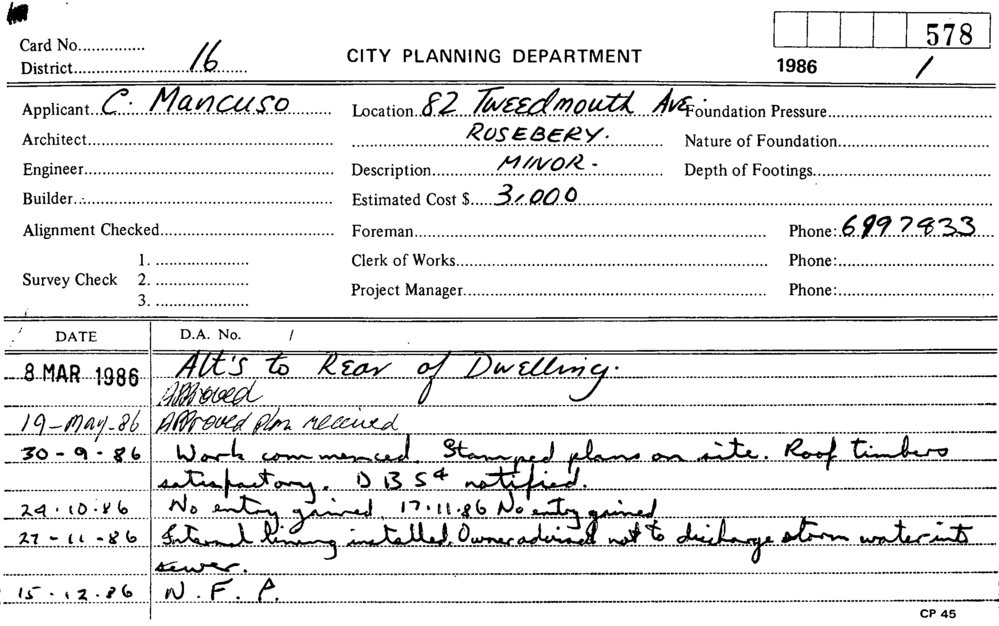 Card No............... 578
District...16... CITY PLANNING DEPARTMENT 1986 /
Applicant...C. Mancuso... Location...82 Tweedmouth Ave. Foundation Pressure...
Architect... ROSEBERY. Nature of Foundation...
Engineer... Description...MINOR. Depth of Footings...
Builder... Estimated Cost $...3,000
Alignment Checked... Foreman... Phone:
1. ... Clerk of Works... Phone:...
Survey Check 2. ...
3. ... Project Manager... Phone:...
DATE D.A. No. /
8 MAR 1986 Alt's to Rear of Dwelling.
Approved
19-May-86 Approved plan received
30-9-86 Work commenced. Stamped plans on site. Roof timbers
satisfactory. D B S 4 notified.
24.10.86 No entry gained. 17.11.86 No entry gained
27-11-86 Internal lining installed. Owner advised not to discharge storm water into
sewer.
15.12.86 N.F.P.
CP 45